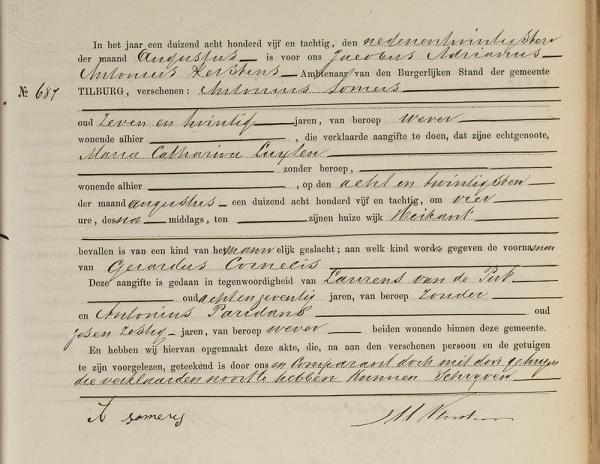 In het jaar een duizend acht honderd vijf en tachtig, den negenentwintigsten
der maand Augustus is voor ons Jacobus Adrianus
Antonius Kerstens Ambtenaar van den Burgerlijken Stand der gemeente
No 687 TILBURG, verschenen: Antonius Somers
oud Zeven en twintig jaren, van beroep wever
wonende alhier , die verklaarde aangifte te doen, dat zijne echtgenoote,
Maria Catharina Luyten
zonder beroep,
wonende alhier , op den acht en twintigsten
der maand augustus een duizend acht honderd vijf en tachtig, om vier
ure, des na middags, ten zijnen huize wijk Heikant
bevallen is van een kind van het mannelijk geslacht; aan welk kind worde gegeven de voornamen
van Gerardus Cornelis
Deze aangifte is gedaan in tegenwoordigheid van Laurens van de
oud achtenzeventig jaren, van beroep Zonder
en Antonius Paridans oud
zesenzestig jaren, van beroep wever beiden wonende binnen deze gemeente.
En hebben wij hiervan opgemaakt deze akte, die, na aan den verschenen persoon en de getuigen
te zijn voorgelezen, geteekend is door ons en Comparant doch niet door getuigen
die verklaarden nooit te hebben kunnen Schryven
A somers